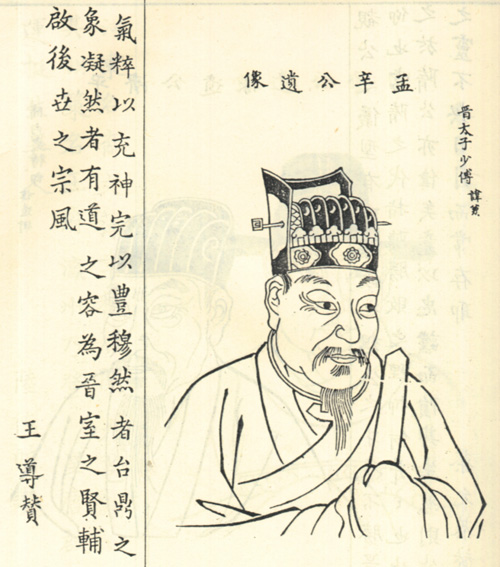 晉太子少傅 諱
孟辛公遺像
氣粹以充神完以豐穆然者台鼎之
象凝然者有道之容為晉室之賢輔
啟後世之宗風
王導賛